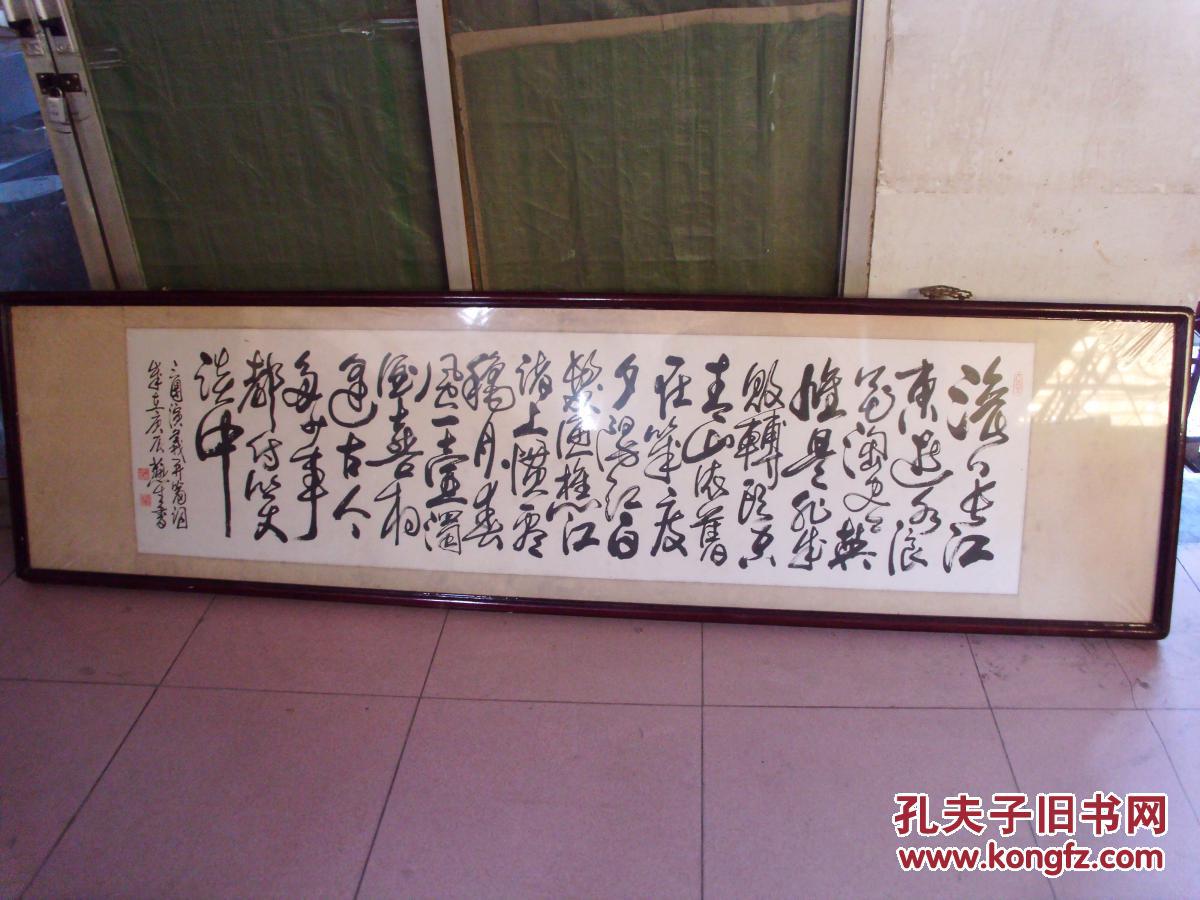 滚滚长江
东逝水浪
花淘尽英
雄是非成
败转頭空
青山依舊
在几度
夕陽红白
髮渔樵江
渚上惯看
秋月春
風一壶濁
酒喜相
逢古今
多少事
都付笑
谈中
三国演義开篇词
歲在庚辰 書
孔夫子旧书网
www.kongfz.com